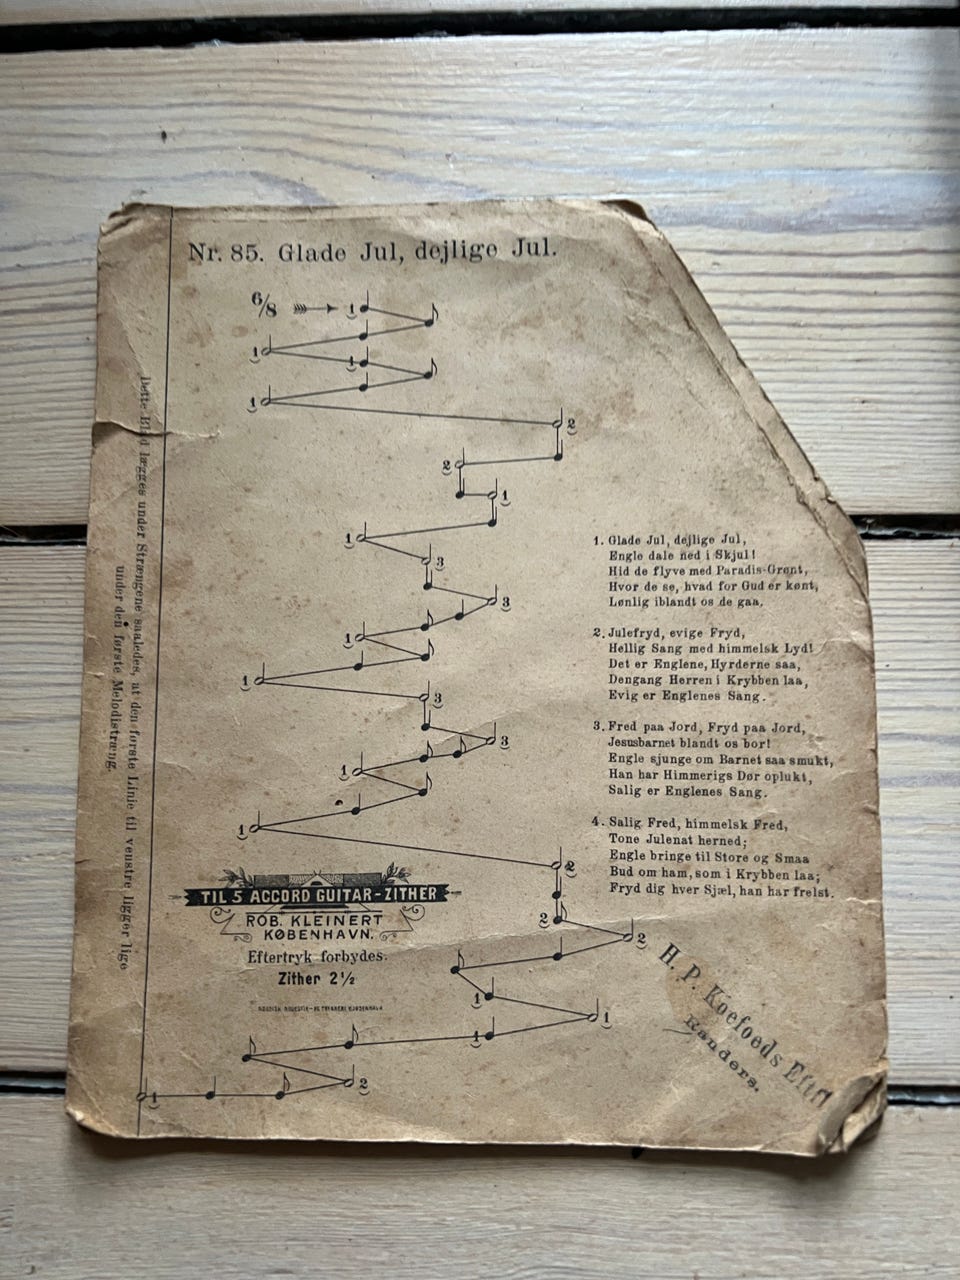 Nr. 85. Glade Jul, dejlige Jul.
6/8
1
1
1
1
2
2
1
1
3
3
1
1
3
3
1
1
2
2
2
1
1
1
2
1
Dette Blad lægges under Strængene saaledes, at den første Linie til venstre ligger lige
under den første Melodistræng.
1. Glade Jul, dejlige Jul,
Engle dale ned i Skjul!
Hid de flyve med Paradis-Grønt,
Hvor de se, hvad for Gud er kønt,
Lønlig iblandt os de gaa.
2. Julefryd, evige Fryd,
Hellig Sang med himmelsk Lyd!
Det er Englene, Hyrderne saa,
Dengang Herren i Krybben laa,
Evig er Englenes Sang.
3. Fred paa Jord, Fryd paa Jord,
Jesusbarnet blandt os bor!
Engle sjunge om Barnet saa smukt,
Han har Himmerigs Dør oplukt,
Salig er Englenes Sang.
4. Salig Fred, himmelsk Fred,
Tone Julenat herned;
Engle bringe til Store og Smaa
Bud om ham, som i Krybben laa;
Fryd dig hver Sjæl, han har frelst.
TIL 5 ACCORD GUITAR-ZITHER
ROB. KLEINERT
KØBENHAVN.
Eftertryk forbydes.
Zither 2½
H. P. Koefoeds Eftf
Randers.